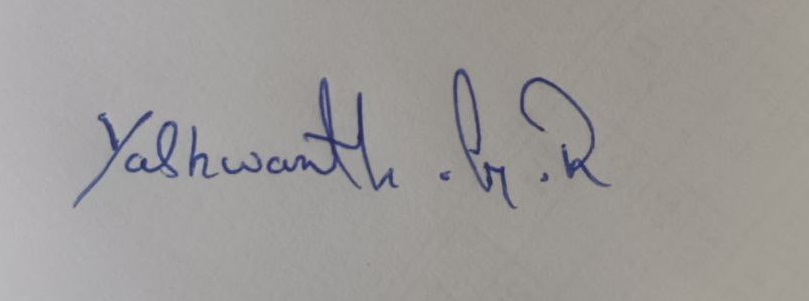 Yashwanth .G.R